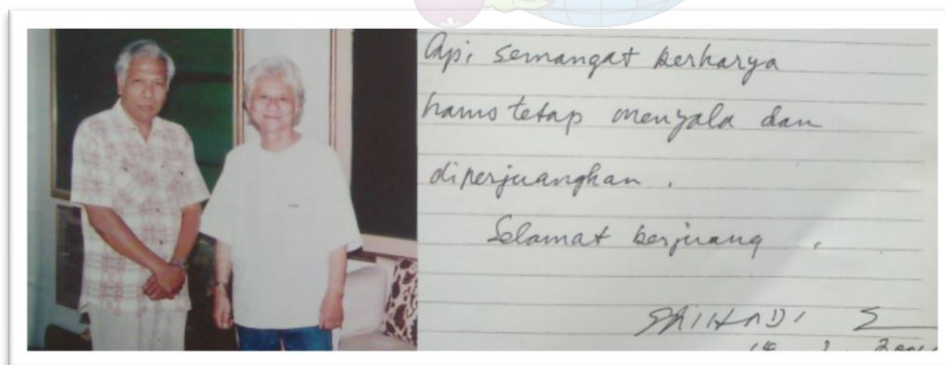 Api semangat berkarya
harus tetap menyala dan
diperjuangkan.
Selamat berjuang.
SRIHADI S